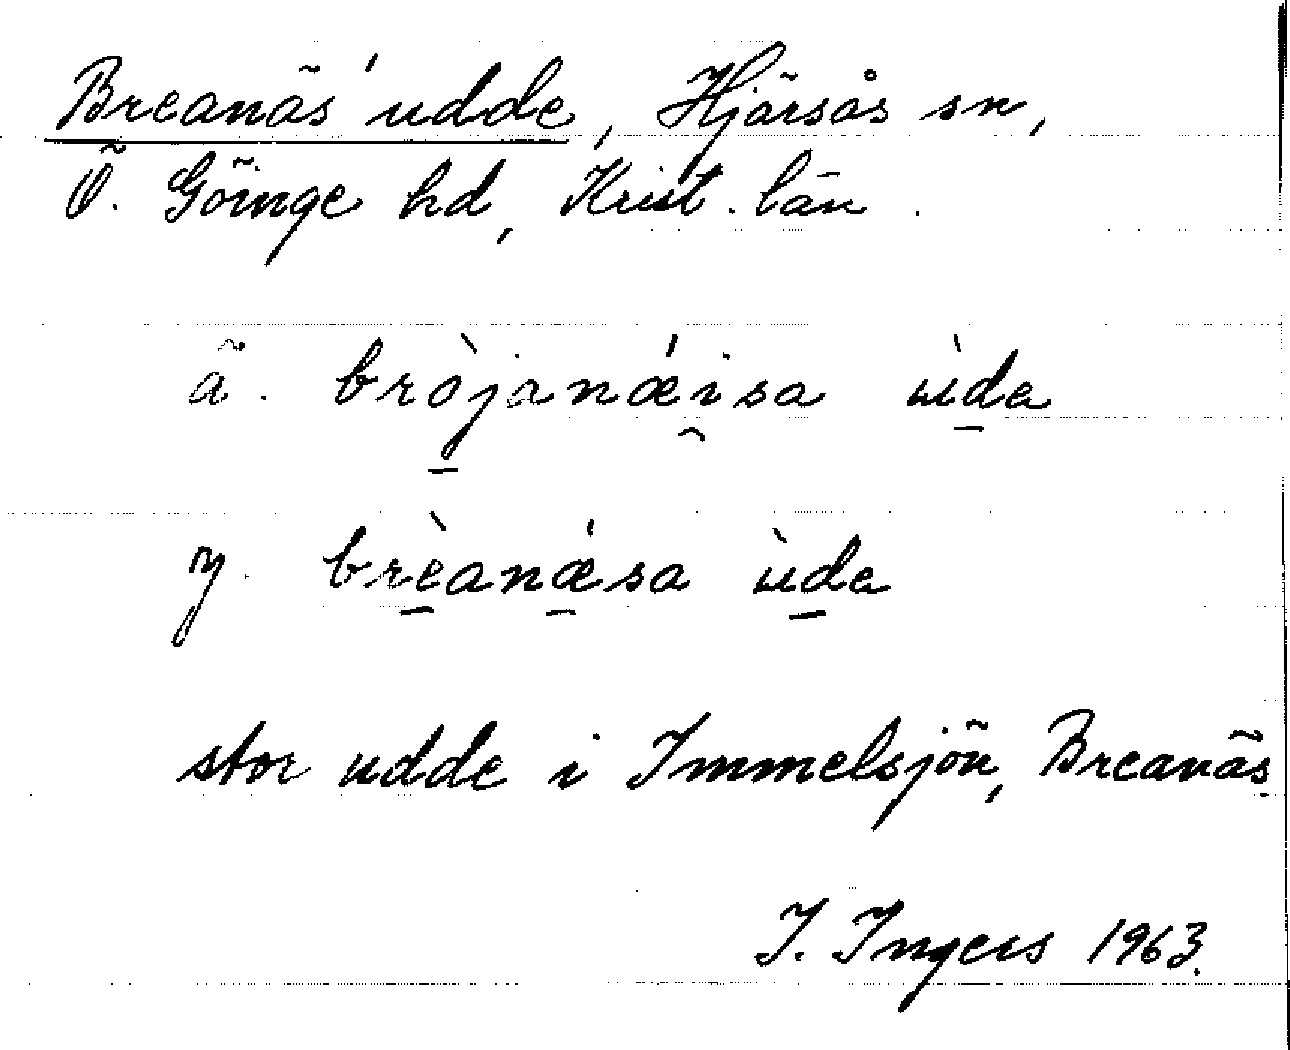 Breanäs' udde, Hjärsås sn,
Ö. Göinge hd, Krist. län.
ä. bròjanǽisa ùda
y. brèanǽsa ùda
stor udde i Immelsjön, Breanäs
I. Ingers 1963.